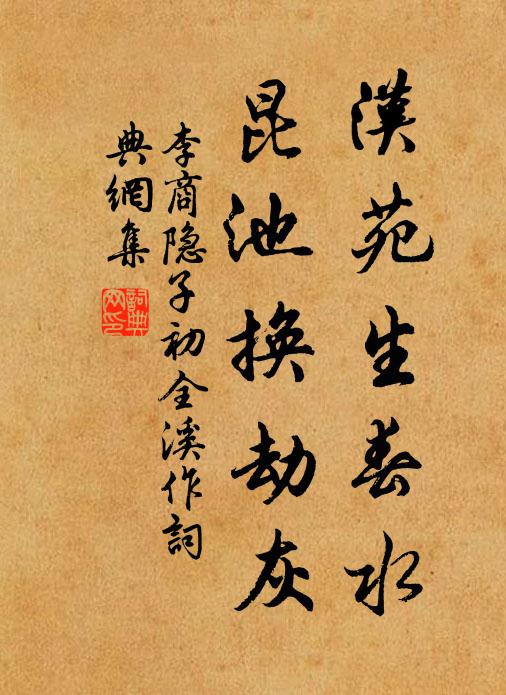 漢苑生春水
昆池換劫灰
李商隐子初全溪作詞
典網集
詞典
网印